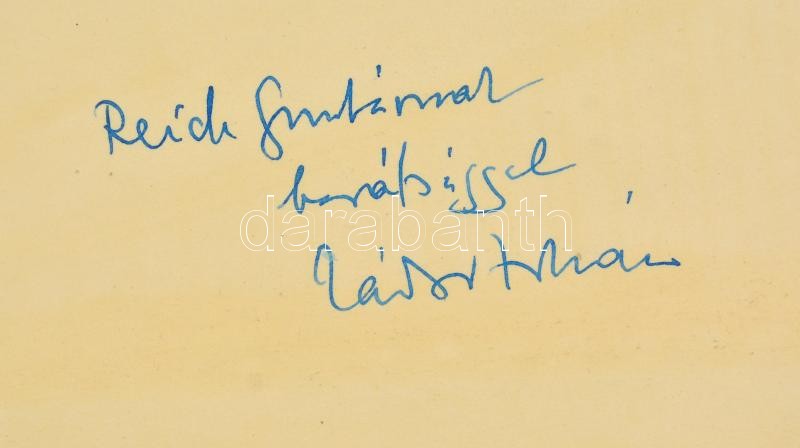 Reich Gusztávnak
barátsággal
darabanth
Zádor István